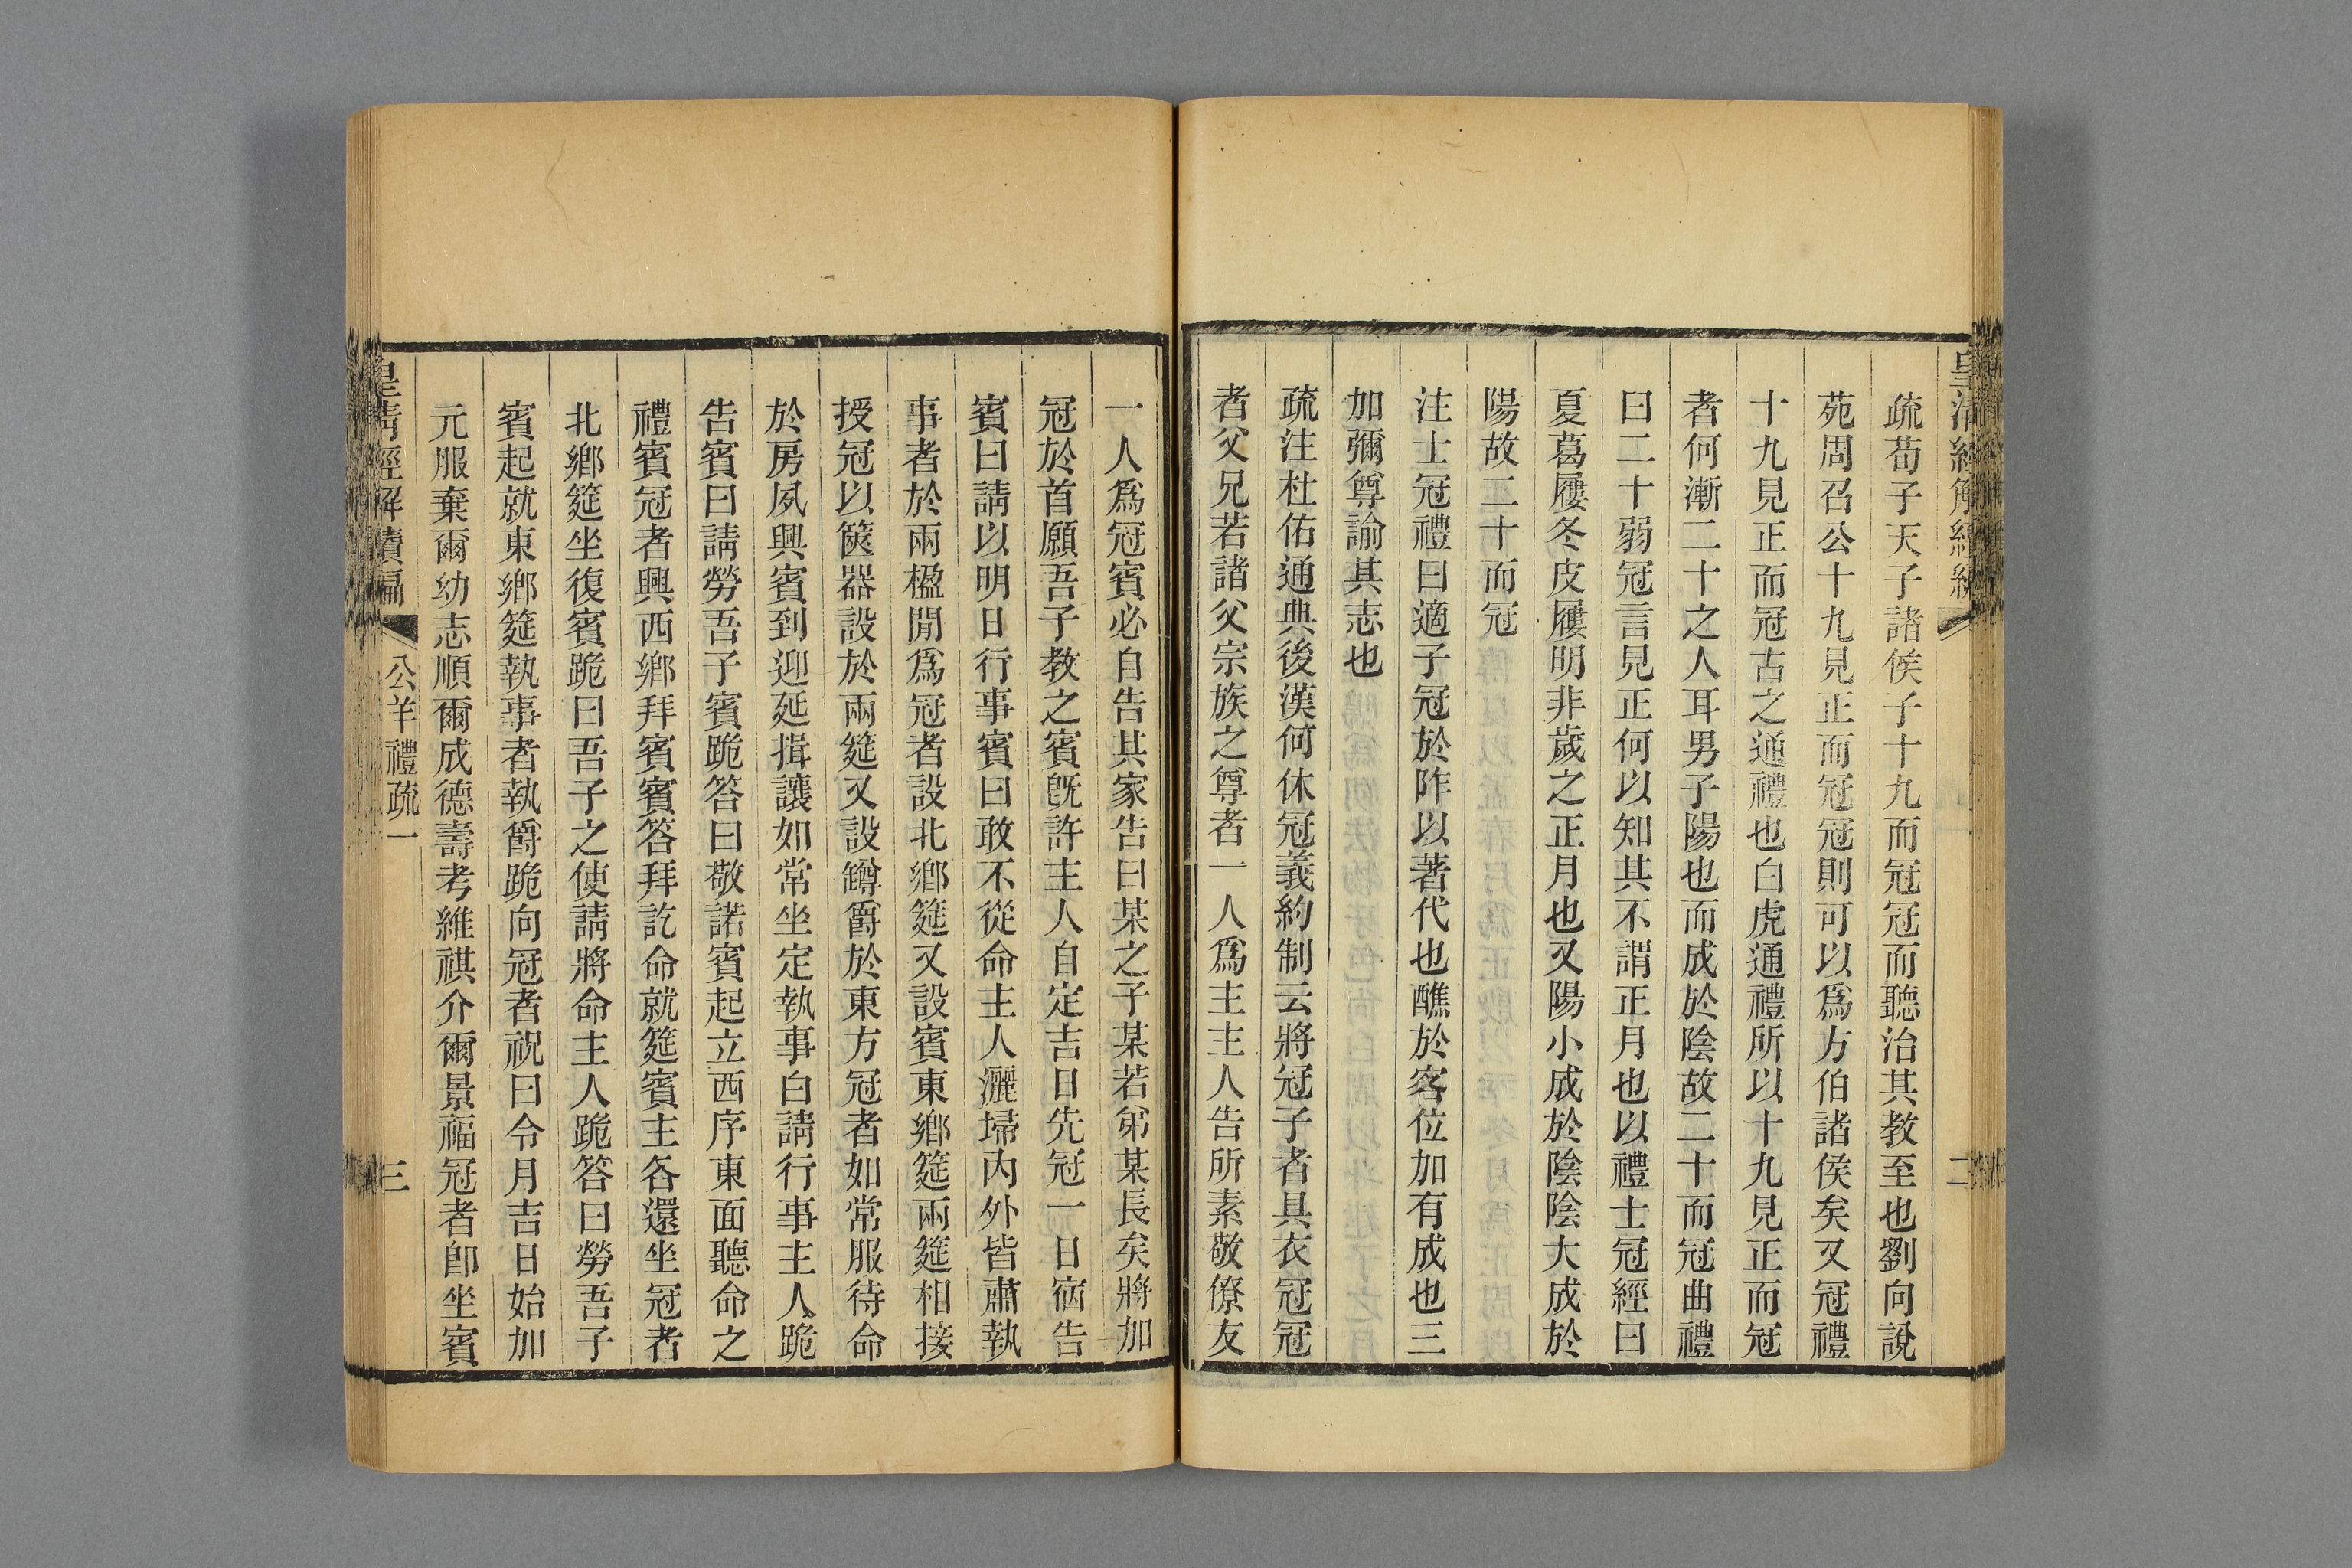 疏荀子天子諸侯子十九而冠冠而聽治其教至也劉向說
苑周召公十九見正而冠冠則可以爲方伯諸侯矣又冠禮
十九見正而冠古之通禮也白虎通禮所以十九見正而冠
者何漸二十之人耳男子陽也而成於陰故二十而冠曲禮
曰二十弱冠言見正何以知其不謂正月也以禮士冠經曰
夏葛屨冬皮屨明非歲之正月也又陽小成於陰陰大成於
陽故二十而冠
注士冠禮曰適子冠於阼以著代也醮於客位加有成也三
加彌尊諭其志也
疏注杜佑通典後漢何休冠義約制云將冠子者具衣冠冠
者父兄若諸父宗族之尊者一人爲主主人告所素敬僚友
一人爲冠賓必自告其家告曰某之子某若弟某長矣將加
冠於首願吾子教之賓旣許主人自定吉日先冠一日宿告
賓曰請以明日行事賓曰敢不從命主人灑埽內外皆肅執
事者於兩楹閒爲冠者設北鄉筵又設賓東鄉筵兩筵相接
授冠以篋器設於兩筵又設罇爵於東方冠者如常服待命
於房夙興賓到迎延揖讓如常坐定執事白請行事主人跪
告賓曰請勞吾子賓跪答曰敬諾賓起立西序東面聽命之
禮賓冠者興西鄉拜賓賓答拜訖命就筵賓主各還坐冠者
北鄉筵坐復賓跪曰吾子之使請將命主人跪答曰勞吾子
賓起就東鄉筵執事者執爵跪向冠者祝曰令月吉日始加
元服棄爾幼志順爾成德壽考維祺介爾景福冠者卽坐賓
皇清經解續編 公羊禮疏一 三